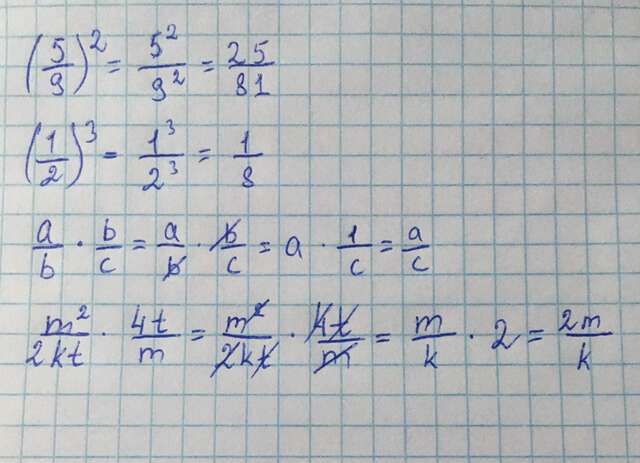 (5/9)² = 5²/9² = 25/81
(1/2)³ = 1³/2³ = 1/8
a/b · b/c = a/b · b/c = a · 1/c = a/c
m²/2kt · 4t/m = m²/2kt · 4t/m = m/k · 2 = 2m/k